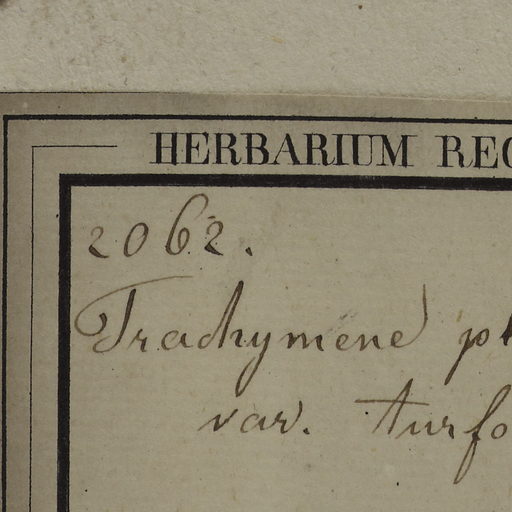 HERBARIUM REG
2062.
Trachymene p
var. turfo